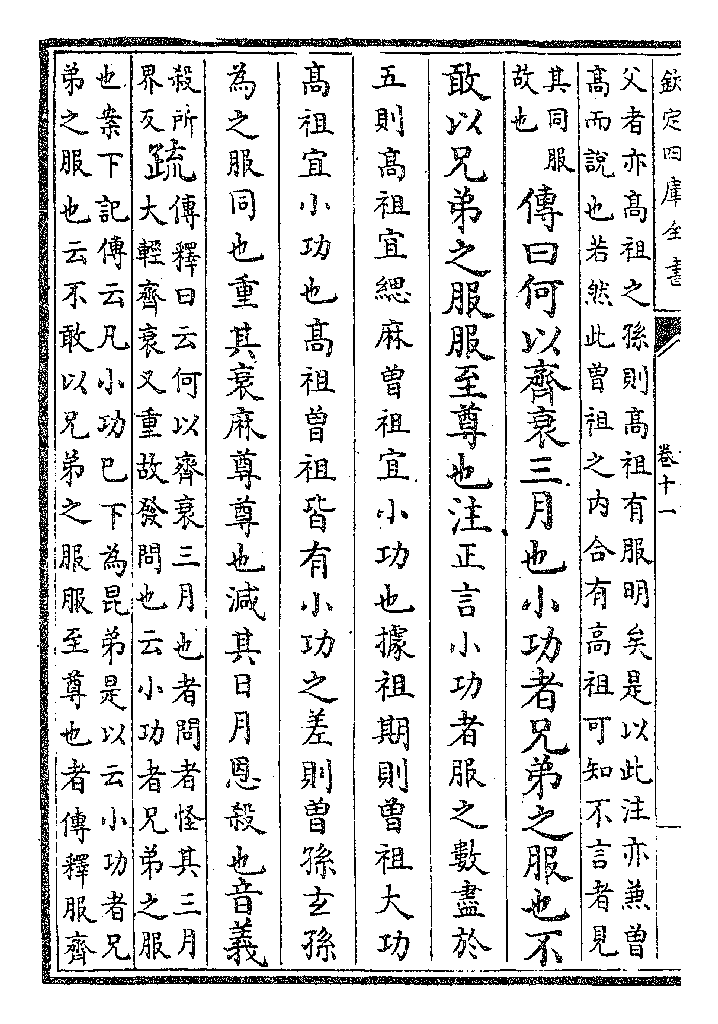 欽定四庫全書
卷十一
父者亦髙祖之孫則髙祖有服明矣是以此注亦兼曽
髙而說也若然此曽祖之内合有高祖可知不言者見
其同服
故也
傳曰何以齊衰三月也小功者兄弟之服也不
敢以兄弟之服服至尊也注正言小功者服之數盡於
五則髙祖宜緦麻曽祖宜小功也據祖期則曽祖大功
髙祖宜小功也髙祖曽祖皆有小功之差則曽孫玄孫
為之服同也重其衰麻尊尊也減其日月恩殺也音義
殺所
界反
疏
傳釋曰云何以齊衰三月也者問者怪其三月
大輕齊衰又重故發問也云小功者兄弟之服
也案下記傳云凡小功已下為昆弟是以云小功者兄
弟之服也云不敢以兄弟之服服至尊也者傳釋服齊